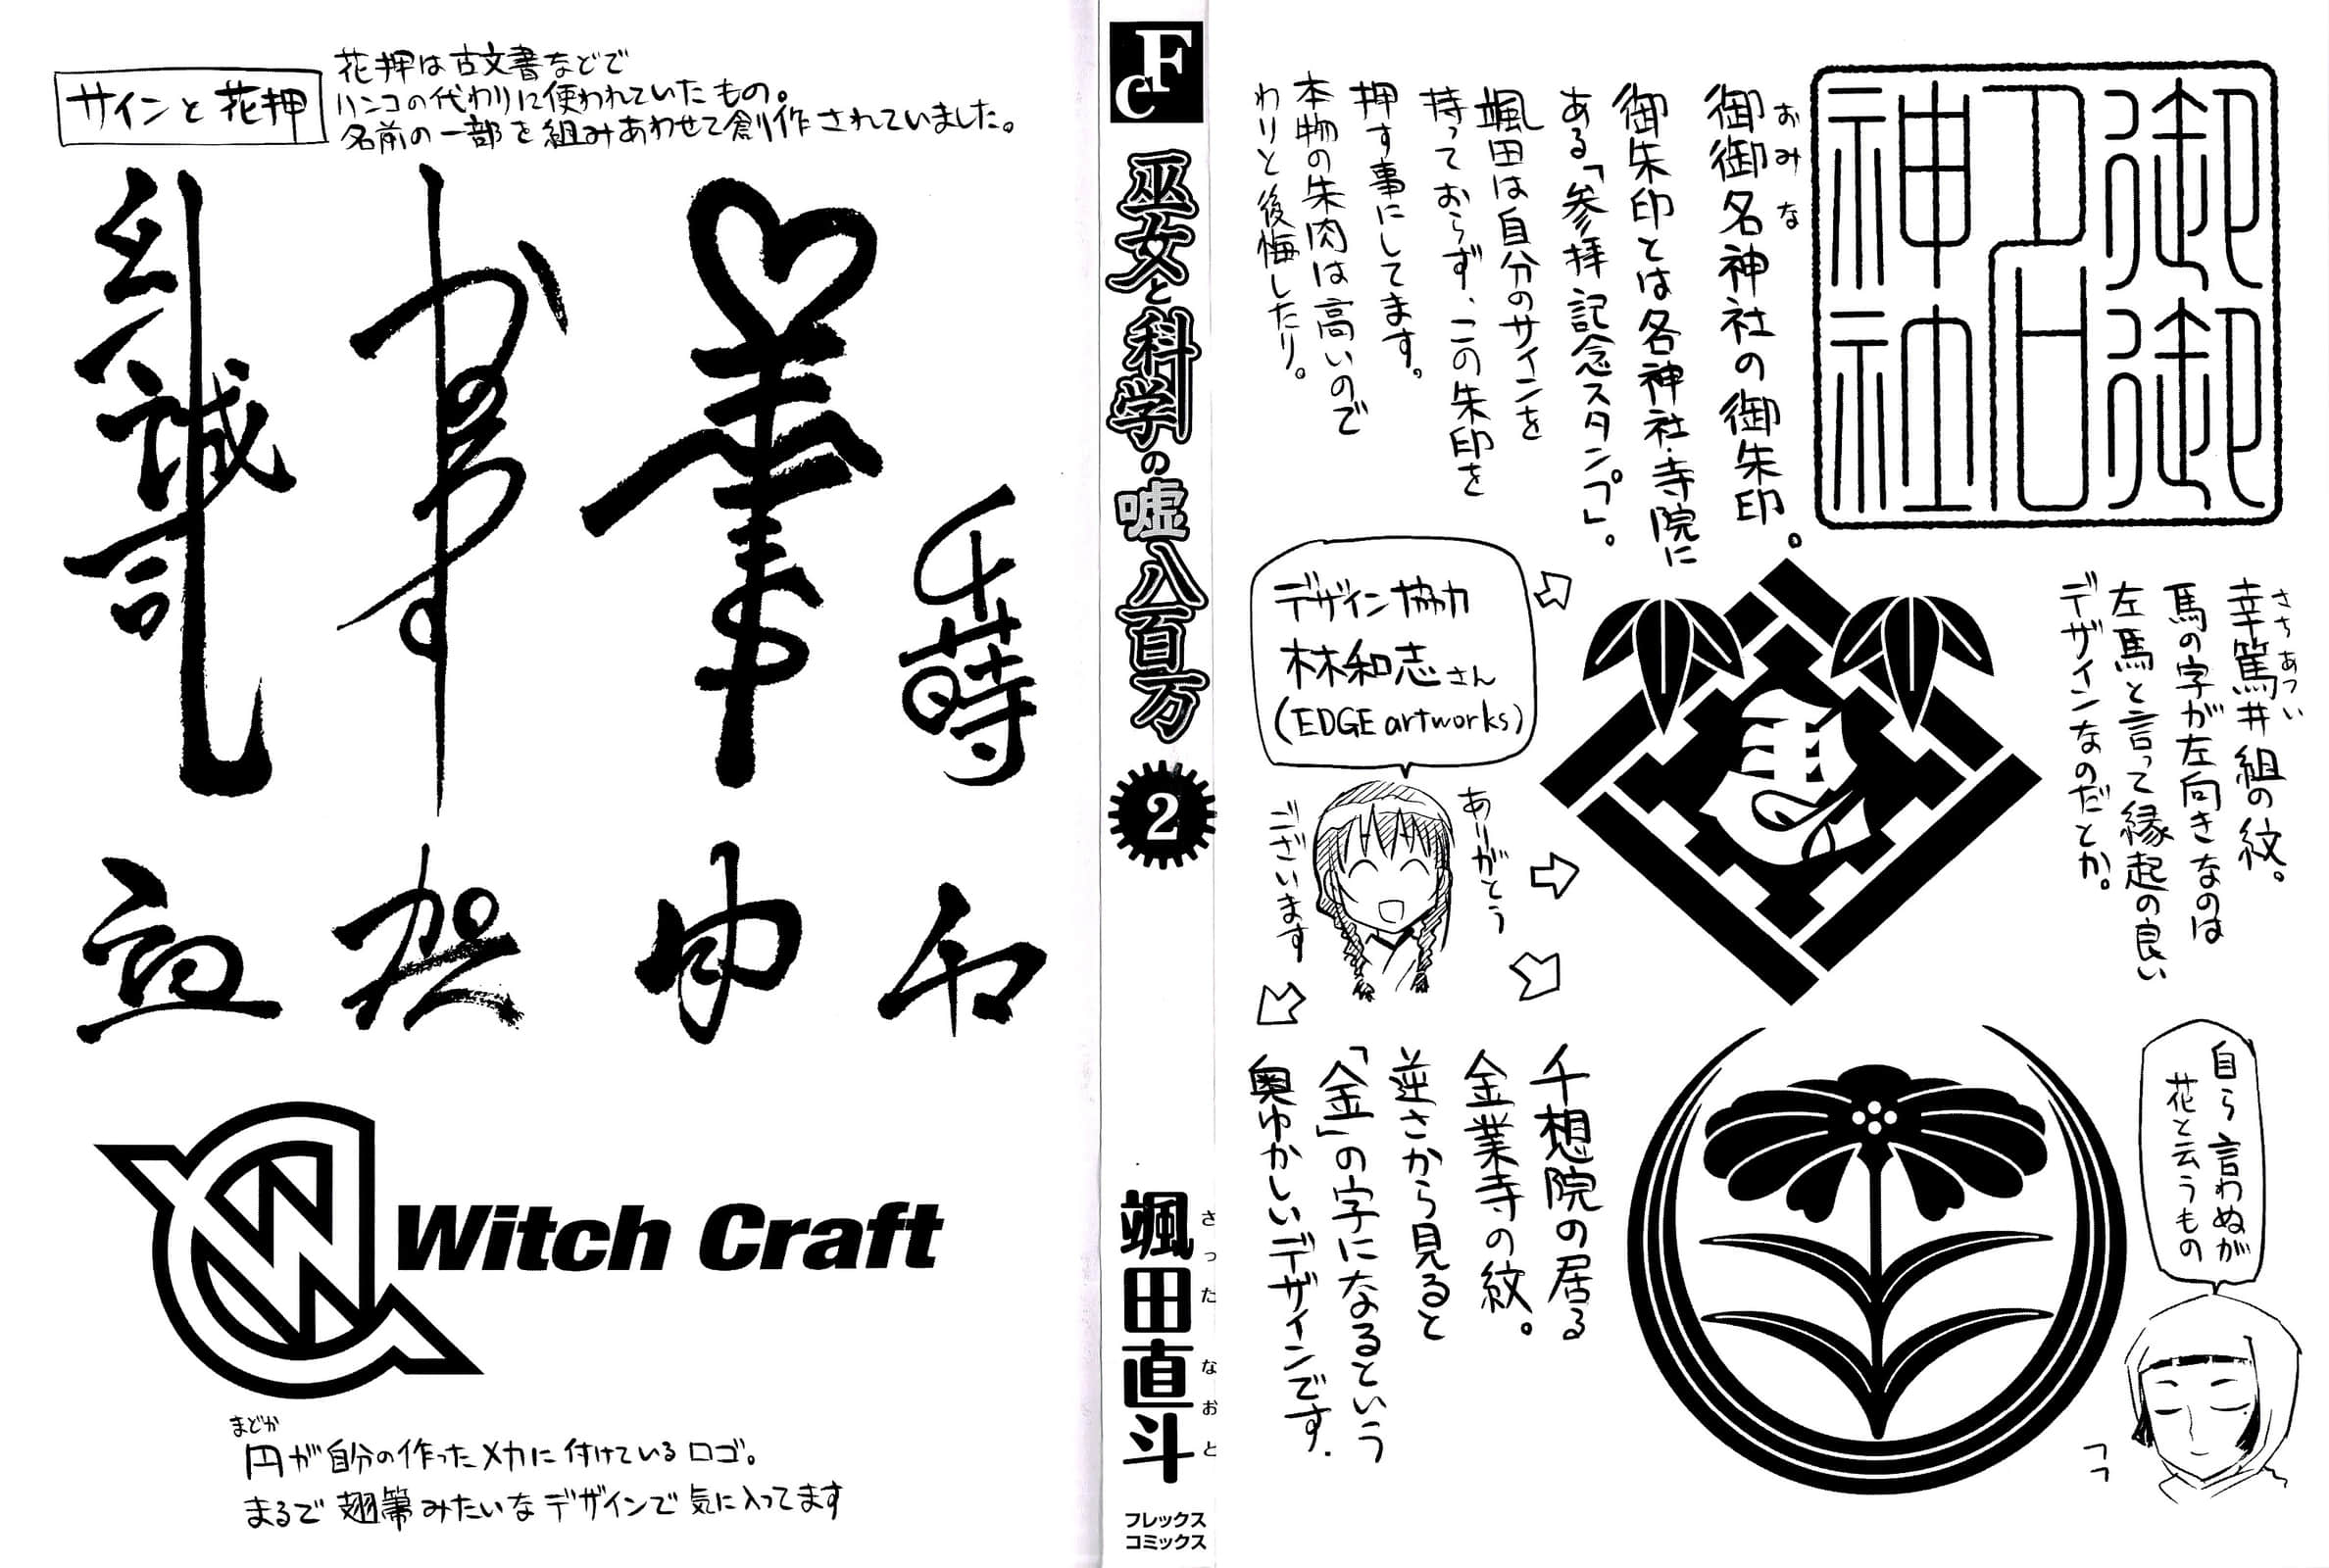 御御名神社
御御名神社の御朱印。
おみな
御朱印とは各神社・寺院に
ある「参拝記念スタンプ」。
颯田は自分のサインを
持っておらず、この朱印を
押す事にしてます。
本物の朱肉は高いので
わりと後悔したり。
幸篤井組の紋。
さちあつい
馬の字が左向きなのは
左馬と言って縁起の良い
デザインなのだとか。
デザイン協力
林和志さん
(EDGE artworks)
ありがとう
ございます
千想院の居る
金業寺の紋。
逆さから見ると
「金」の字になるという
奥ゆかしいデザインです.
自ら言わぬが
花と云うもの
フフ
FC
巫女と科学の嘘八百万
2
颯田直斗
さったなおと
フレックス
コミックス
サインと花押
花押は古文書などで
ハンコの代わりに使われていたもの。
名前の一部を組みあわせて創作されていました。
千蒔
誠司
Witch Craft
まどか
円が自分の作ったメカに付けているロゴ。
まるで翅筆みたいなデザインで気に入ってます